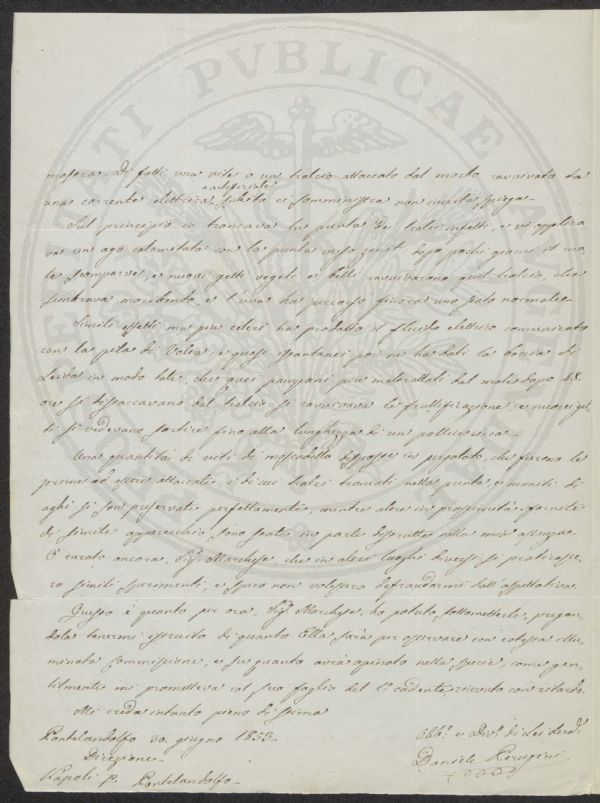 mostra. Di fatti una vite o un tralcio attaccato dal morbo ravvivato da
una corrente elettrica artificiale, subito ci somministra non incerta
Sul principio io troncava la punta dei tralci infetti, e vi applica
va un ago calamitato con la punta verso dopo pochi giorni il ma
le scomparve, e nuovi getti vegeti e belli ravvivarono quel tralcio, che
sembrava moribondo, e l'uva ha percorso finora uno stato normale
Simili effetti ma più celeri ha prodotto il fluido elettrico comunicato
con la pila di Volta, e quasi spontanei poi ne ha dati la boccia di
Leida in modo tale, che quei pampani più maltrattati dal male dopo 48
ore si distaccavano dal tralcio si ravvivava la fruttificazione, e nuovi get
ti si vedevano sortire fino alla lunghezza di un pollice circa
Una quantità di viti di moscadello disposte in pergolato, che furono le
prime ad essere attaccate, e di cui i tralci troncati nella punta e muniti di
aghi si son preservati perfettamente, mentre altre in prossimità, fornite
di simile apparecchio sono state in parte distrutte nella mia assenza
Ò curato ancora, Sigr Marchese, che in altri luoghi diversi si praticasse
ro simili sperimenti, e spero non volessero defraudarmi dell'aspettativa.
Questo è quanto per ora, Sigr Marchese, ho potuto sottometterle, pregan
dola tenermi istruito di quanto Ella sarà per osservare con cotesta illu
minata Commissione, e su quanto avrà opinato nella specie, come gen
tilmente mi prometteva col suo foglio del 1° cadente, ricevuto con ritardo.
Mi creda intanto pieno di stima
Pontelandolfo 30 giugno 1853.
Obbl. e Div. di Lei
Direzione
Daniele Perugini
Napoli p. Pontelandolfo
PVBLICAE